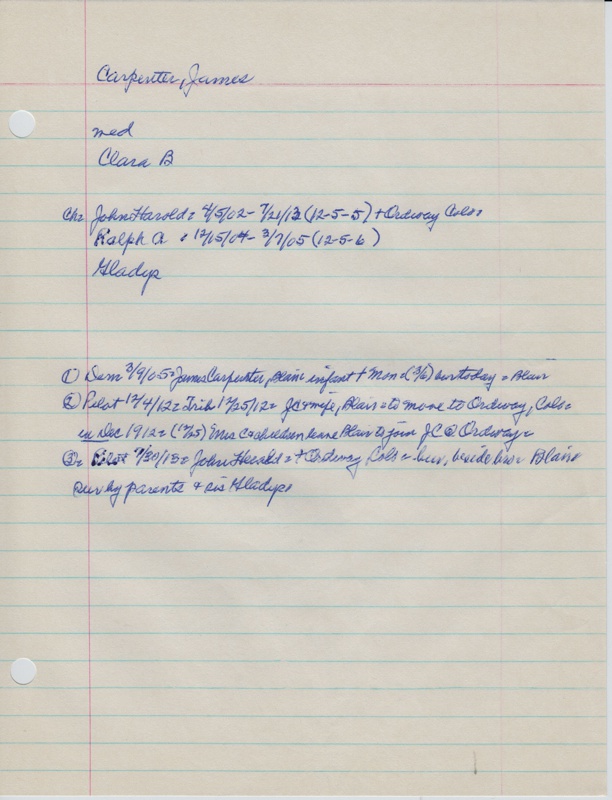 Carpenter, James
med
Clara B
Ch= John Harold= 4/5/02- 7/21/13 (12-5-5) + Ordway Colo=
Ralph A = 12/15/04- 3/7/05 (12-5-6)
Gladys
(1) Dem 3/9/05= James Carpenter, Blair infant + Mon (3/6) bur today = Blair
(2) Pilot 12/4/12= Trib 12/25/12= JC + wife, Blair= to move to Ordway, Colo=
in Dec 1912= (12/25) Mrs C + children leave Blair to join JC @ Ordway=
(3)= Pilot 7/30/13= John Harold= + Ordway Colo = bur, beside bro= Blair=
sur by parents + sis Gladys=